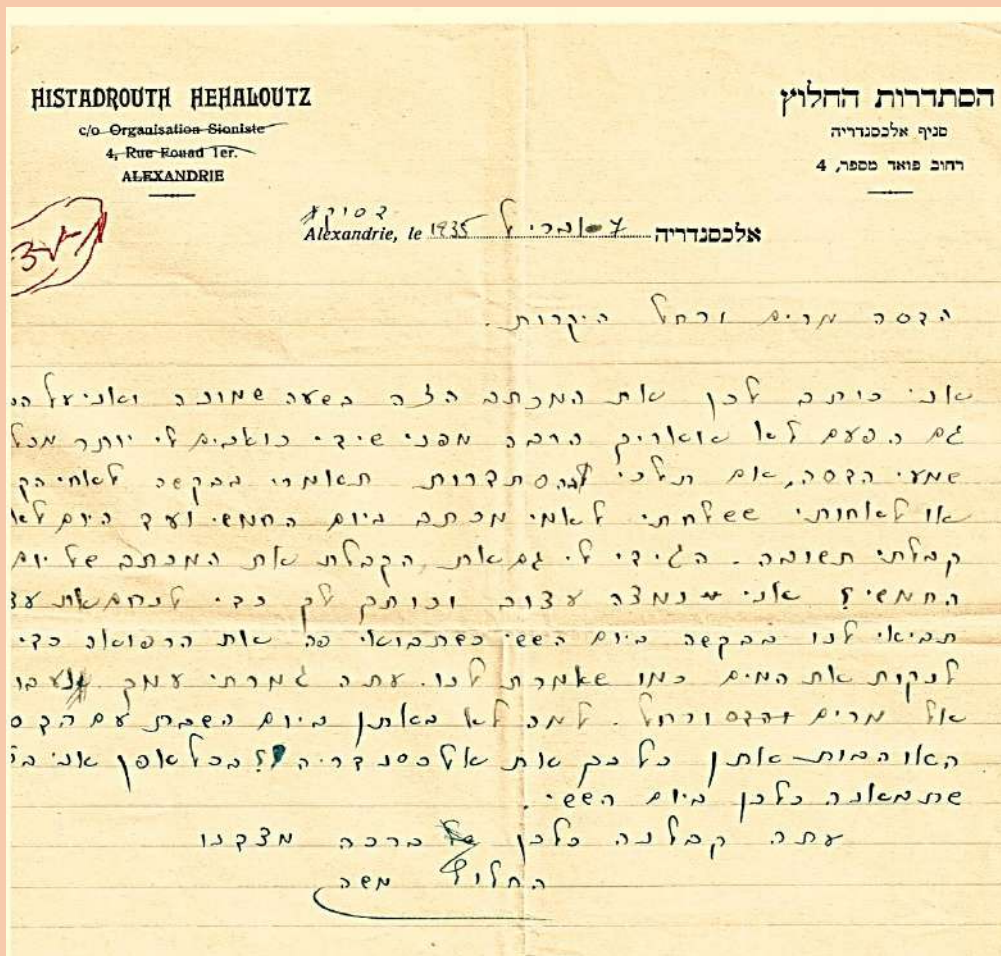 HISTADROUTH HEHALOUTZ
c/o Organisation Sioniste
4, Rue Fouad 1er.
ALEXANDRIE
הסתדרות החלוץ
סניף אלכסנדריה
רחוב פואד מספר, 4
Alexandrie, le 1935 אפריל 7 אלכסנדריה
הדסה מרים ורחל היקרות.
אני כותב לכן את המכתב הזה בשעה שמונה ואני על
גם הפעם לא אאריך הרבה מפני שידי כואבים לי יותר מכל
שמעי הדסה, אם תלכי להסתדרות תאמרי בבקשה לאחי
או לאחותי ששלחתי לאמי מכתב ביום החמשי ועד היום לא
קבלתי תשובה. הגידי לי גם את, הקבלת את המכתב של יום
החמשי? אני נמצה עצוב וכותב לך כדי
תביאי לנו בבקשה ביום הששי כשתבואי פה את הרפואה כדי
לנקות את המים כמו שאמרת לנו. עתה גמרתי עמך
אל מרים ורחל. למה לא באתן ביום השבת עם
האוהבות אתן כל כך את אלכסנדריה?? בכל אפן אני
שתבאנה כלכן ביום הששי.
עתה קבלנה כלכן ברכה מצדנו
החלוץ משה